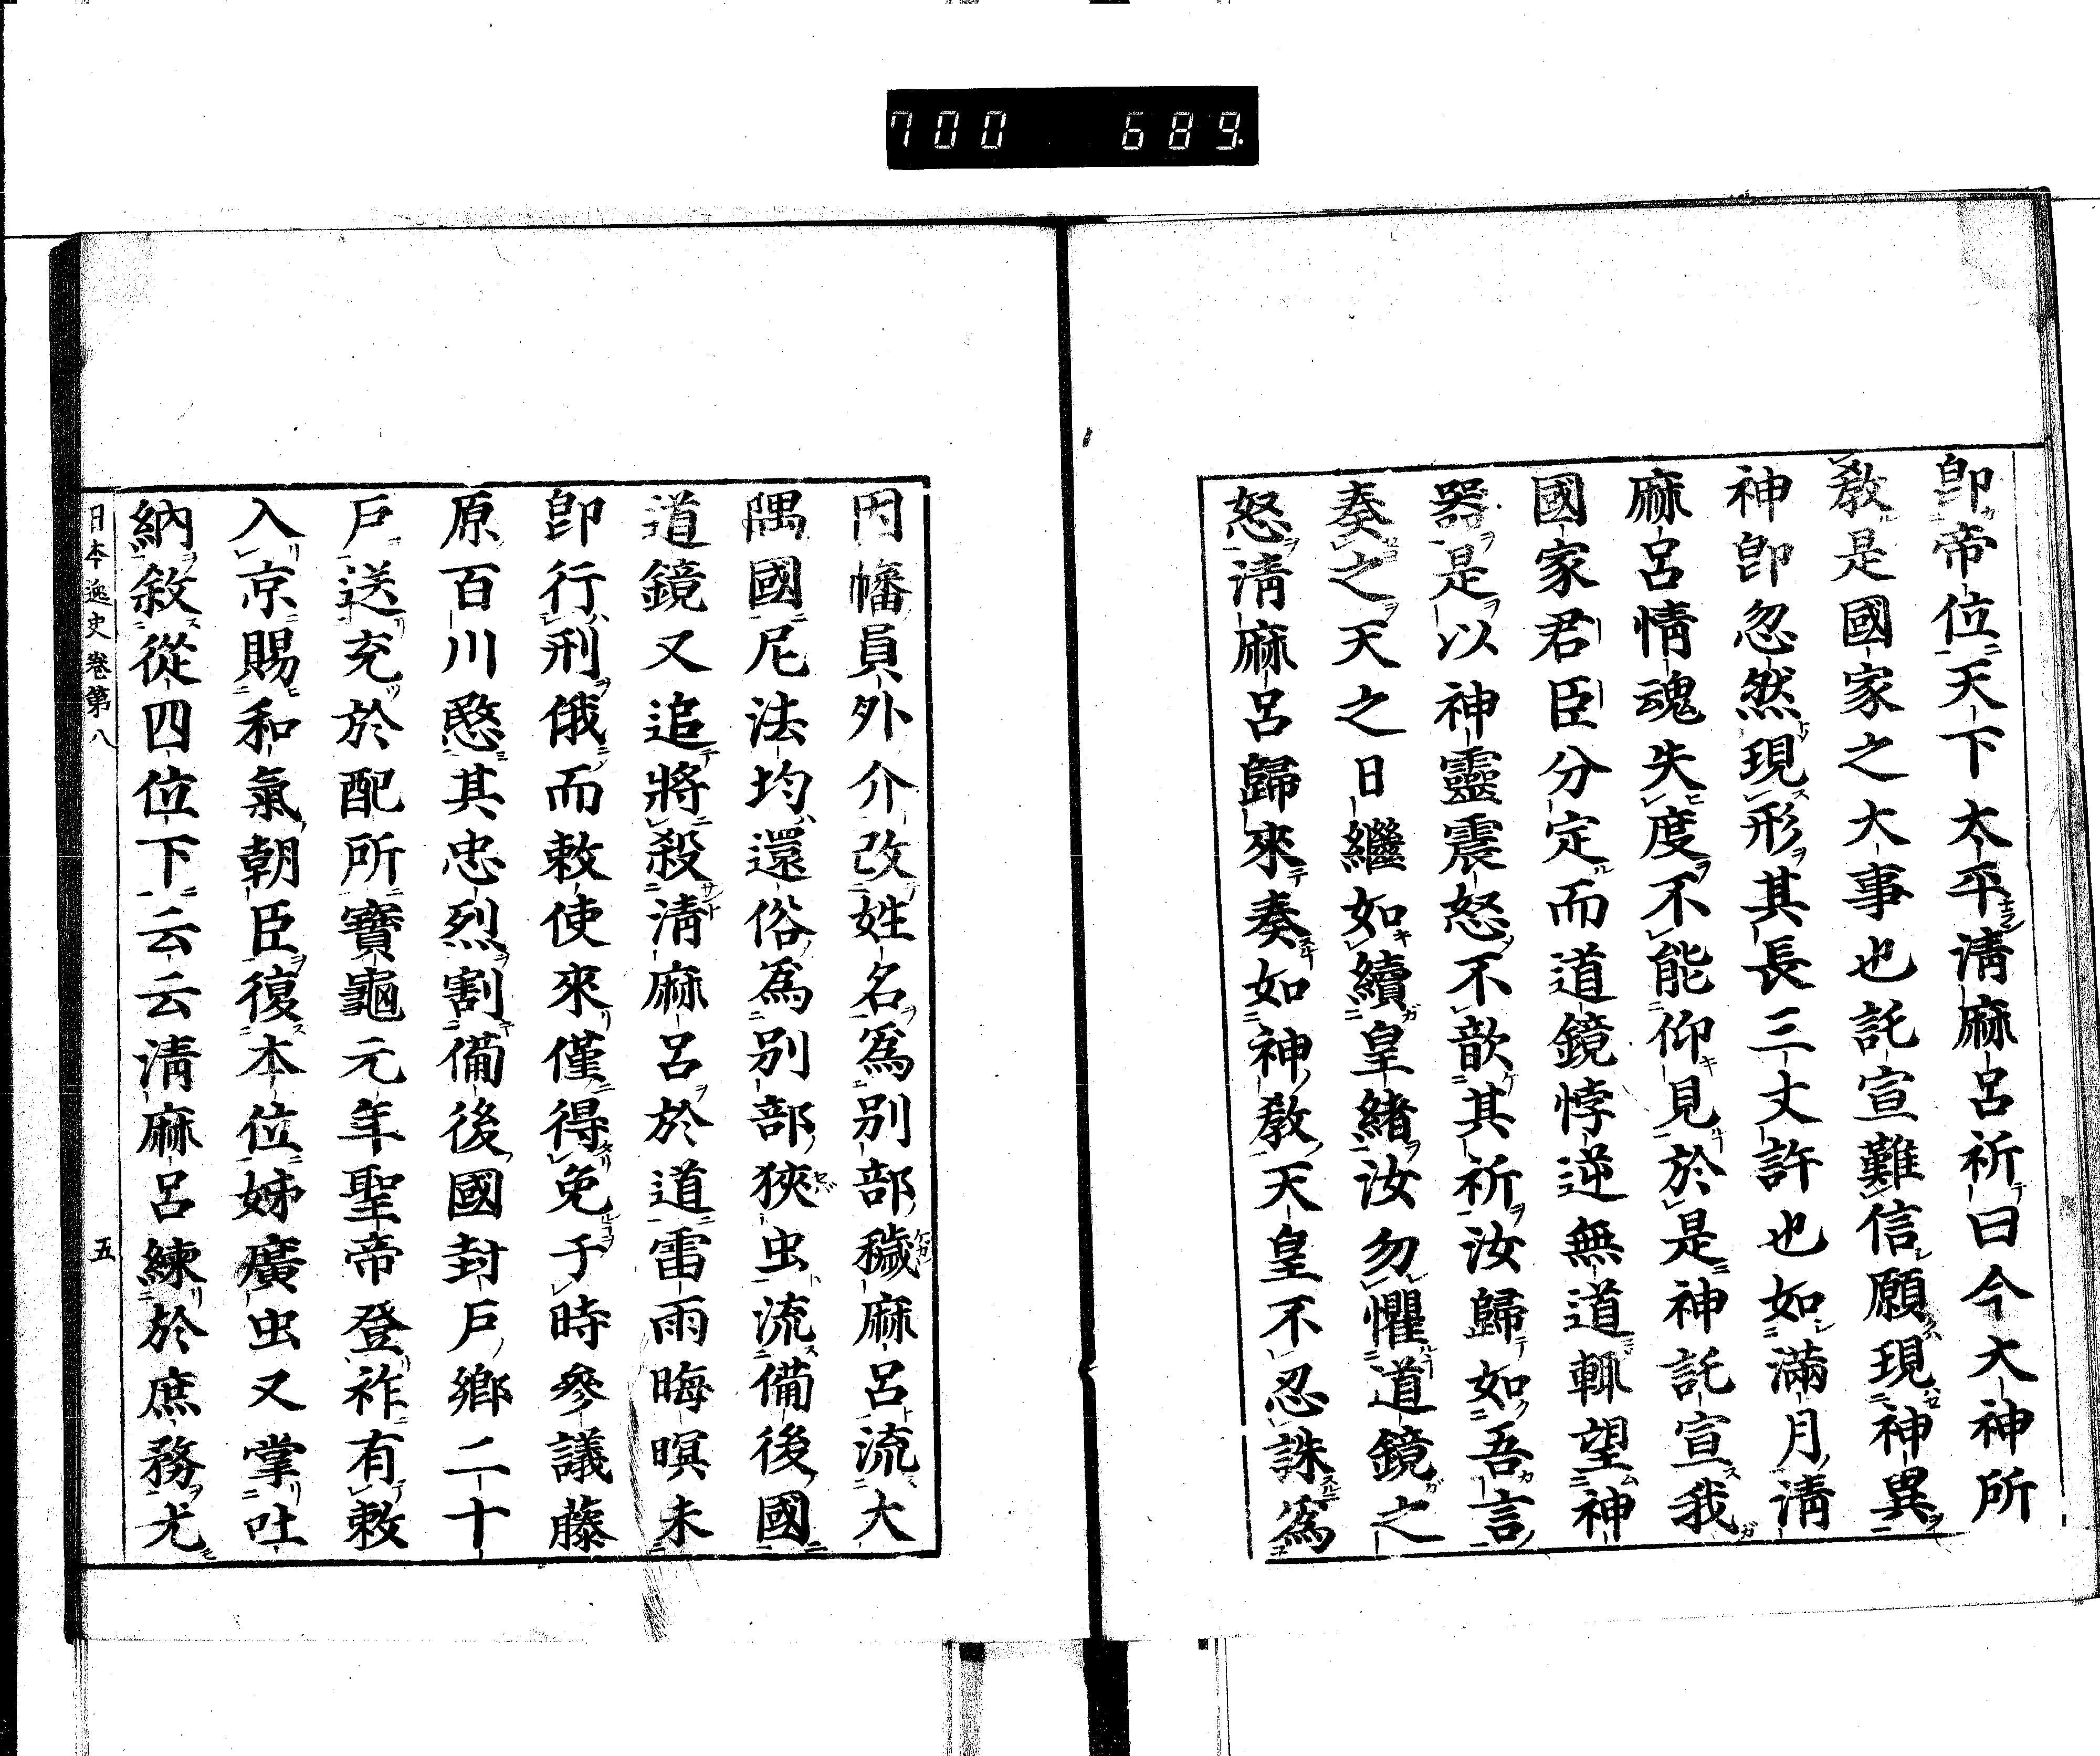 700 689
卽帝位天下太平淸麻呂祈曰今大神所
敎是國家之大事也託宣難信願現神異
神卽忽然現形其長三丈許也如滿月淸
麻呂情魂失度不能仰見於是神託宣我
國家君臣分定而道鏡悖逆無道輒望神
器是以神靈震怒不歆其祈汝歸如吾言
奏之天之日繼如續皇緖汝勿懼道鏡之
怒淸麻呂歸來奏如神敎天皇不忍誅爲
因幡員外介改姓名爲別部穢麻呂流大
隅國尼法均還俗爲別部狹虫流備後國
道鏡又追將殺淸麻呂於道雷雨晦暝未
卽行刑俄而敕使來僅得免于時參議藤
原百川愍其忠烈割備後國封戶鄕二十
戶送充於配所寶龜元年聖帝登祚有敕
入京賜和氣朝臣復本位姊廣虫又掌吐
納敘從四位下云云淸麻呂練於庶務尤
日本逸史卷第八 五